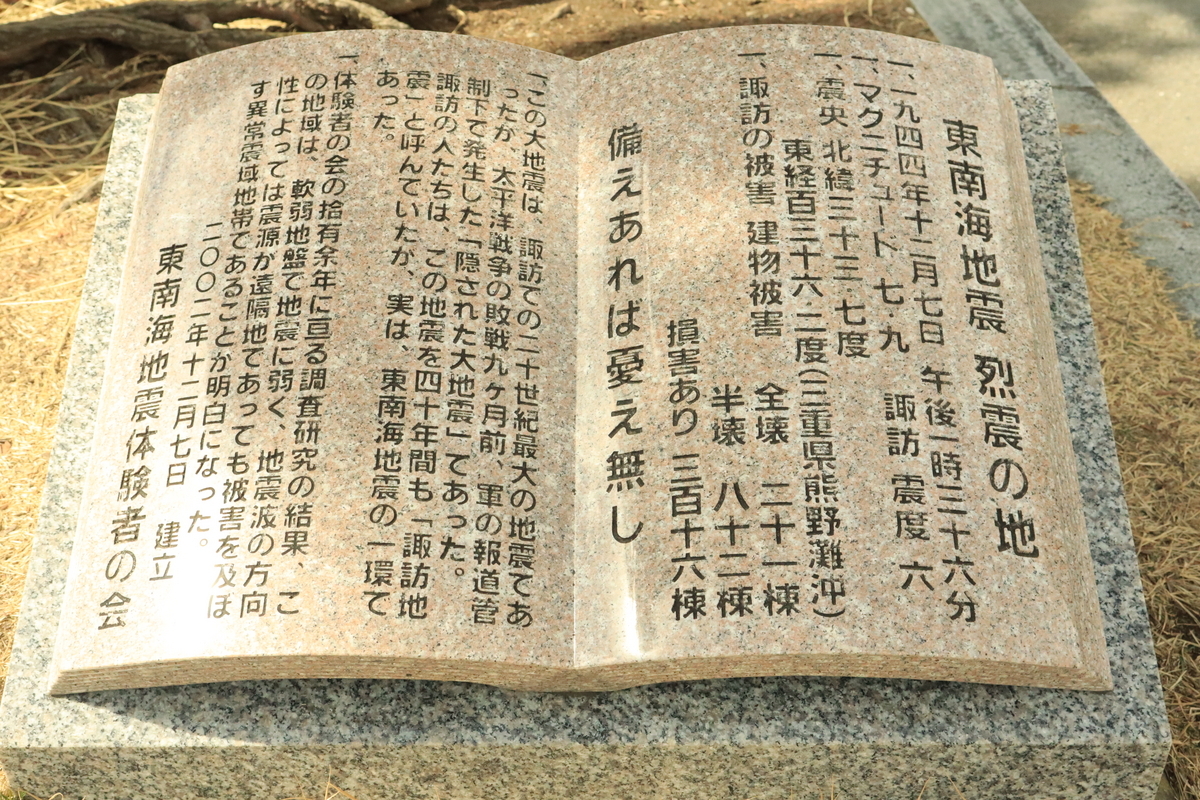 東南海地震 烈震の地
一、一九四四年十二月七日 午後一時三十六分
一、マグニチュード 七・九 諏訪 震度 六
一、震央 北緯三十三・七度
東経百三十六・二度(三重県熊野灘沖)
一、諏訪の被害 建物被害 全壊 二十一棟
半壊 八十二棟
損害あり 三百十六棟
備えあれば憂え無し
一、この大地震は、諏訪での二十世紀最大の地震であ
ったが、太平洋戦争の敗戦九ヶ月前、軍の報道管
制下で発生した「隠された大地震」であった。
諏訪の人たちは、この地震を四十年間も「諏訪地
震」と呼んでいたが、実は、東南海地震の一環で
あった。
一、体験者の会の拾有余年に亘る調査研究の結果、こ
の地域は、軟弱地盤で地震に弱く、地震波の方向
性によっては震源が遠隔地であっても被害を及ぼ
す異常震域地帯であることが明白になった。
二〇〇二年十二月七日 建立
東南海地震体験者の会